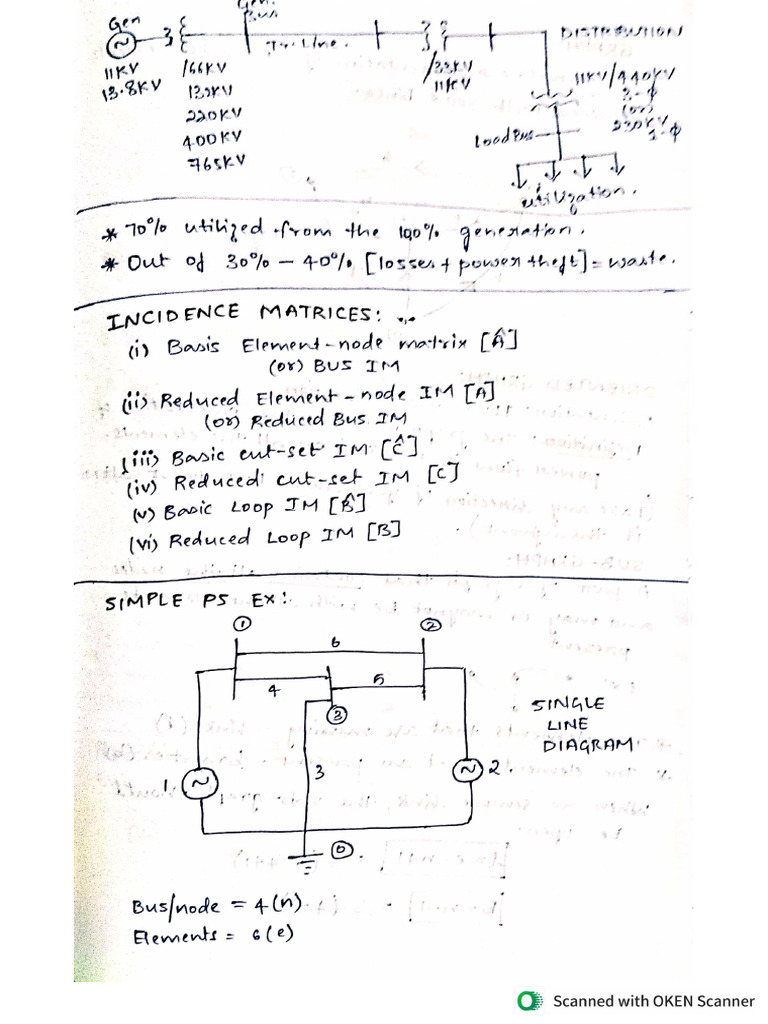 Gen
Gen.
Bus
Tr. Line.
DISTRIBUTION
11KV
13.8KV
/66KV
132KV
220KV
400KV
765KV
/33KV
11KV
11KV/440KV
3-ϕ
(or)
230KV
1-ϕ
Load Bus
utilization.
* 70% utilized from the 100% generation.
* Out of 30% - 40% [losses + power theft] = waste.
INCIDENCE MATRICES:
(i) Basis Element-node matrix [Â]
(or) BUS IM
(ii) Reduced Element-node IM [A]
(or) Reduced Bus IM
(iii) Basic cut-set IM [Ĉ]
(iv) Reduced cut-set IM [C]
(v) Basic Loop IM [B̂]
(vi) Reduced Loop IM [B]
SIMPLE PS EX:
① ②
6
4 5
③
SINGLE
LINE
DIAGRAM
1 ~ 3 ~ 2.
⓪
Bus/node = 4(n)
Elements = 6(e)
Scanned with OKEN Scanner